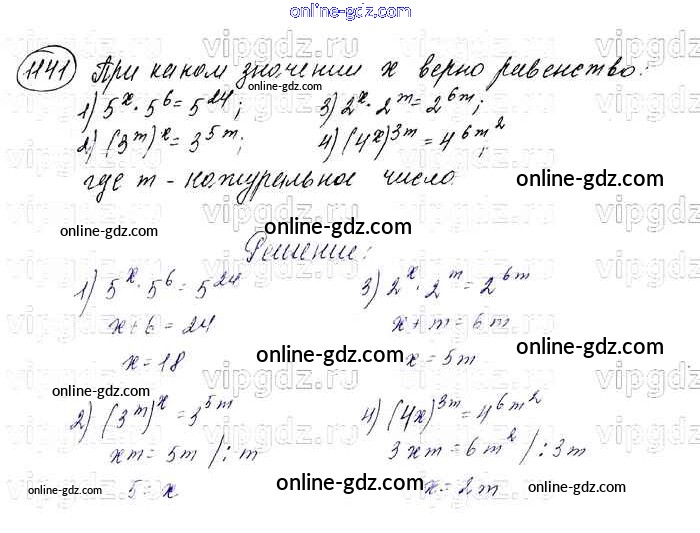 online-gdz.com
1141 При каком значении x верно равенство:
1) 5^x · 5^6 = 5^24; 3) 2^x · 2^m = 2^6m;
2) (3^m)^x = 3^5m; 4) (4^x)^3m = 4^6m^2;
где m - натуральное число.
online-gdz.com
online-gdz.com
online-gdz.com
online-gdz.com
Решение:
1) 5^x · 5^6 = 5^24 3) 2^x · 2^m = 2^6m
x + 6 = 24 x + m = 6m
x = 18 x = 5m
online-gdz.com
online-gdz.com
online-gdz.com
2) (3^m)^x = 3^5m 4) (4x)^3m = 4^6m^2
xm = 5m /: m 3xm = 6m^2 /: 3m
5 = x x = 2m
online-gdz.com
online-gdz.com
online-gdz.com
vipgdz.ru